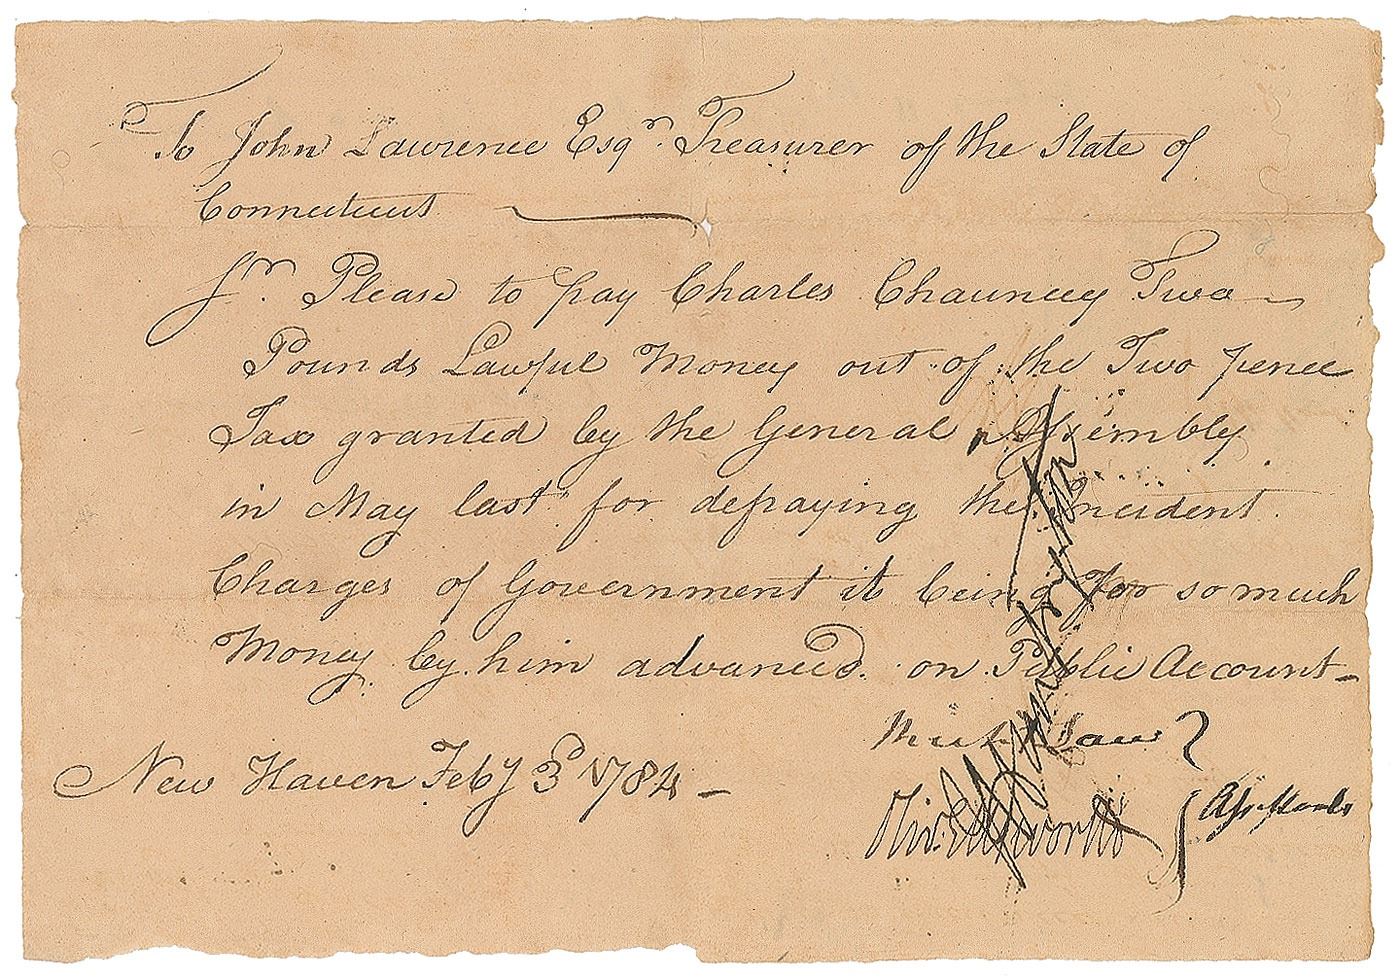 To John Lawrence Esqr. Treasurer of the State of
Connecticut
Sr. Please to pay Charles Chauncey Two
Pounds Lawful Money out of the Two pence
Tax granted by the General Assembly
in May last for defraying the Incident
Charges of Government it being for so much
Money by him advanced on Public Account
New Haven Feby 3d 1784
Law
Olivr. Ellsworth
Assistants